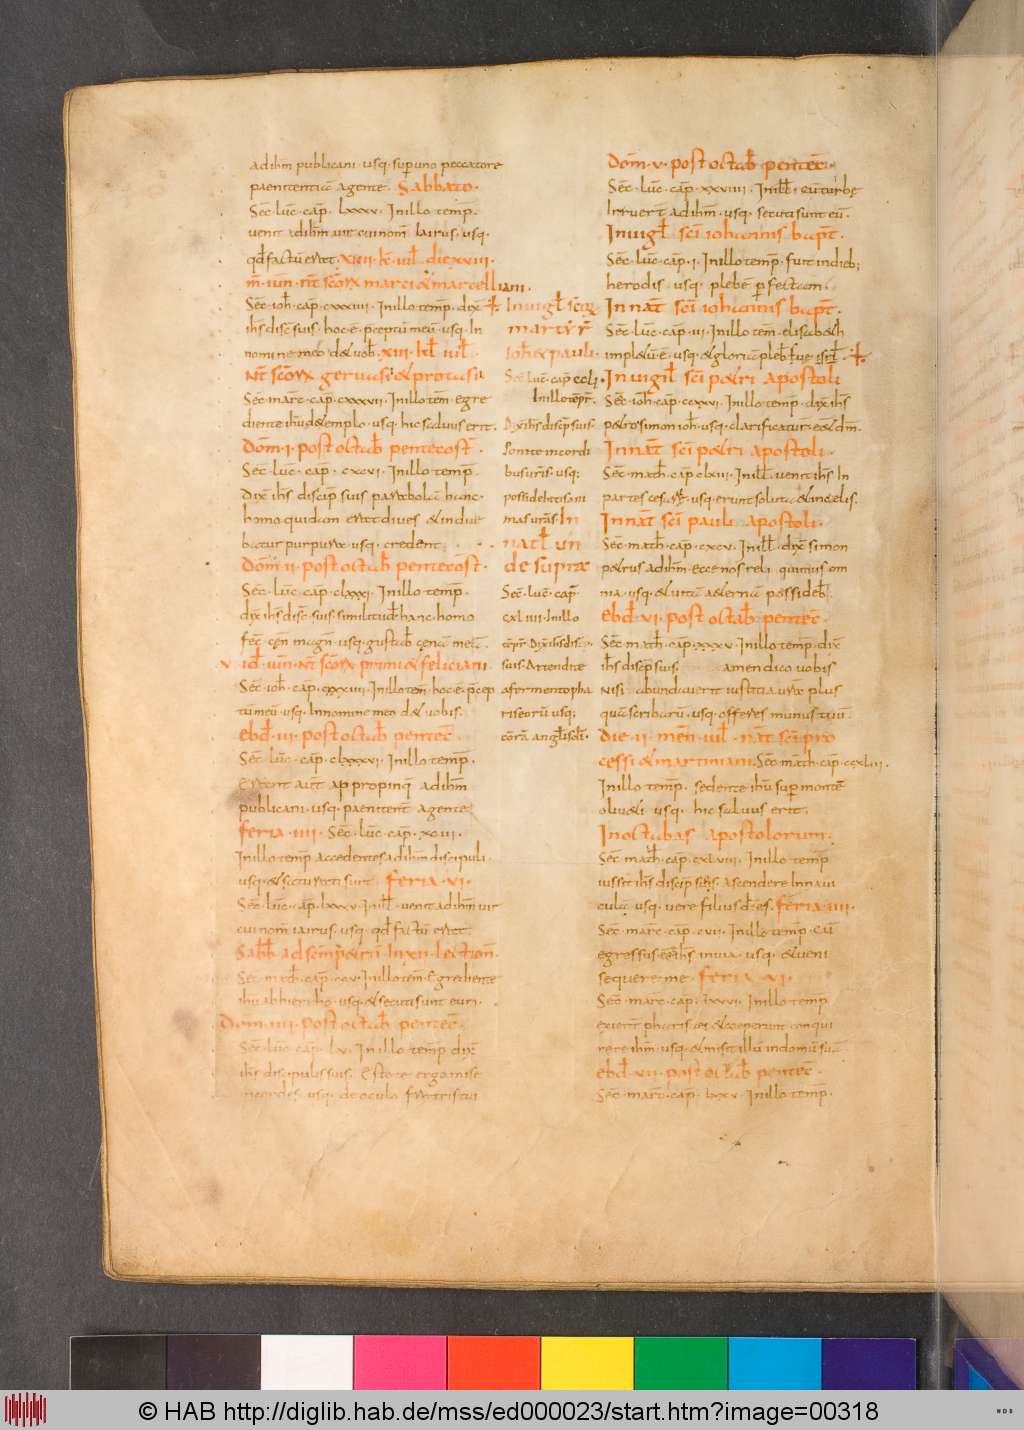 adihm publicani · usq · sup uno peccatore
paenitentia agente. Sabbato ·
Sec̄ · luc̄ · cap̄ · lxxxv · In illo temp̄ ·
venit ad ihm̄ vir cui nom̄ iairus · usq ·
qd̄ factū erat · XIIII · kl̄ · iul̄ · die xviii ·
m̄ · iun̄ · nt̄ sc̄orx marci & marcelliani ·
Sec̄ · ioh̄ · cap̄ · cxxxiii · In illo temp̄ · dix̄
ihs̄ disc̄ suis · hoc · ē · p̄ceptū meū · usq · In
nomine meo d& vob̄ · XIII · kl̄ iul̄ ·
Nt̄ sc̄orx gervasii & protasii
Sec̄ · marc̄ · cap̄ · cxxxvii · In illo tem̄ · egre
diente ihū de templo · usq · hic salvus erit ·
Dom̄ · I · post octab̄ pentecost̄ ·
Sec̄ · luc̄ · cap̄ · cxcvi · In illo temp̄ ·
Dix̄ ihs̄ discip̄ suis parabolā hanc ·
homo quidam erat dives & indue
batur purpura · usq · credent ·
Dom̄ · II · post octab̄ pentecost̄ ·
Sec̄ · luc̄ · cap̄ · clxxxi · In illo temp̄ ·
dix̄ ihs̄ disc̄ · suis · similitud̄ hanc · homo
fec̄ · cen̄ magn̄ · usq · gustab̄ cenā meā ·
V · id̄ · iun̄ · Nt̄ sc̄orx primi & feliciani
Sec̄ · ioh̄ · cap̄ · cxxxiii · In illo tem̄ · hoc · ē · p̄cep
tū meū · usq · In nomine meo d& vobis ·
ebd̄ · III · post octab̄ pentec̄ ·
Sec̄ · luc̄ · cap̄ · clxxxvi · In illo temp̄ ·
Erant aut̄ appropinq̄ ad ihm̄
publicani · usq · paenitent̄ agente
feria · IIII · Sec̄ · luc̄ · cap̄ · xciii ·
In illo temp̄ accedentes ad ihm̄ discipuli ·
usq · & saturati sunt · feria · VI ·
Sec̄ · luc̄ · cap̄ · lxxxv · In ill̄ · venit ad ihm̄ vir
cui nom̄ iairus · usq · qd̄ factū erat
Sabb̄
Sec̄ · math̄ · cap̄ · ccv · In illo tem̄ · Egrediente
ihū ab hiericho · usq · & secuti sunt eum ·
Dom̄ · IIII · post octab̄ pentec̄ ·
Sec̄ · luc̄ · cap̄ · lv · In illo temp̄ dix̄
ihs̄ discipulis suis · Estote ergo mise
ricordes · usq · de oculo fratris tui
In vigl̄ sc̄orx
martyr̄
ioh̄ & pauli ·
Sec̄ luc̄ · cap̄ ccli ·
In illo temp̄ ·
Dix̄ ihs̄ discip̄ suis ·
Ponite in cordi
bus uris · usq ;
possidebitis ani
mas uras · In
natl̄ un
de supra
Sec̄ · luc̄ · cap̄ ·
cxliiii · In illo
temp̄ · Dix̄ ihs̄ disc̄ ·
suis · Attendite
a fermento pha
riseorū usq ;
corā angl̄is dī ·
Dom̄ · V · post octab̄ pentec̄ ·
Sec̄ · luc̄ · cap̄ · xxviiii · In ill̄ · cū turbe
Irruerent ad ihm̄ · usq · secuti sunt eū ·
In vigl̄ sc̄i iohannis bapt̄ ·
Sec̄ · luc̄ · cap̄ · I · In illo temp̄ · fuit in dieb;
herodis · usq · plebē perfectam ·
In nat̄ sc̄i iohannis bapt̄ ·
Sec̄ · luc̄ · cap̄ · III · In illo tem̄ · elisab&h
impl&ū ē · usq · & gloriā pleb̄ tue isrl̄
In vigil̄ sc̄i p&ri apostoli
Sec̄ · ioh̄ · cap̄ · ccxxvi · In illo temp̄ · dix̄ ihs̄
p&ro simon ioh̄ · usq · clarificatur · e& dm̄ ·
In nat̄ sc̄i p&ri apostoli ·
Sec̄ · math̄ · cap̄ · clxiii · In ill̄ · venit ihs̄ In
partes cesaree · usq · erunt soluta & in celis ·
In nat̄ sc̄i pauli apostoli ·
Sec̄ · math̄ · cap̄ · cxcv · In ill̄ · dix̄ simon
p&rus ad ihm̄ · ecce nos reli quimus om
nia · usq · & vitā &ernā possideb̄
ebd̄ · VI · post octab̄ pentec̄ ·
Sec̄ · math̄ · cap̄ · xxxv · In illo temp̄ · dix̄
ihs̄ discip̄ suis · amen dico vobis
Nisi abundaverit iustitia urā plus
quā scribarū · usq · offeres munus tuū ·
Die · II · men̄ · iul̄ · nat̄ sc̄i pro
cessi & martiniani · Sec̄ · math̄ · cap̄ · ccxliii ·
In illo temp̄ · sedente ihū sup montē
oliv&i usq · hic salvus erit ·
In octabas apostolorum ·
Sec̄ · math̄ · cap̄ · cxlviii · In illo temp̄
iussit ihs̄ discip̄ suos · ascendere In navi
culā · usq · vere filius dī · es · feria · IIII ·
Sec̄ · marc̄ · cap̄ · cvii · In illo temp̄ · cū
egressus eet ihs̄ in via · usq · & veni
sequere me · feria · VI ·
Sec̄ · marc̄ · cap̄ · lxxvi · In illo temp̄
exierunt pharisaei & coeperunt conqui
rere ihm̄ · usq · & misit illū in domū suā
ebd̄ · VII · post octab̄ pentec̄ ·
Sec̄ · marc̄ · cap̄ · lxxv · In illo temp̄ ·
© HAB http://diglib.hab.de/mss/ed000023/start.htm?image=00318
WDB